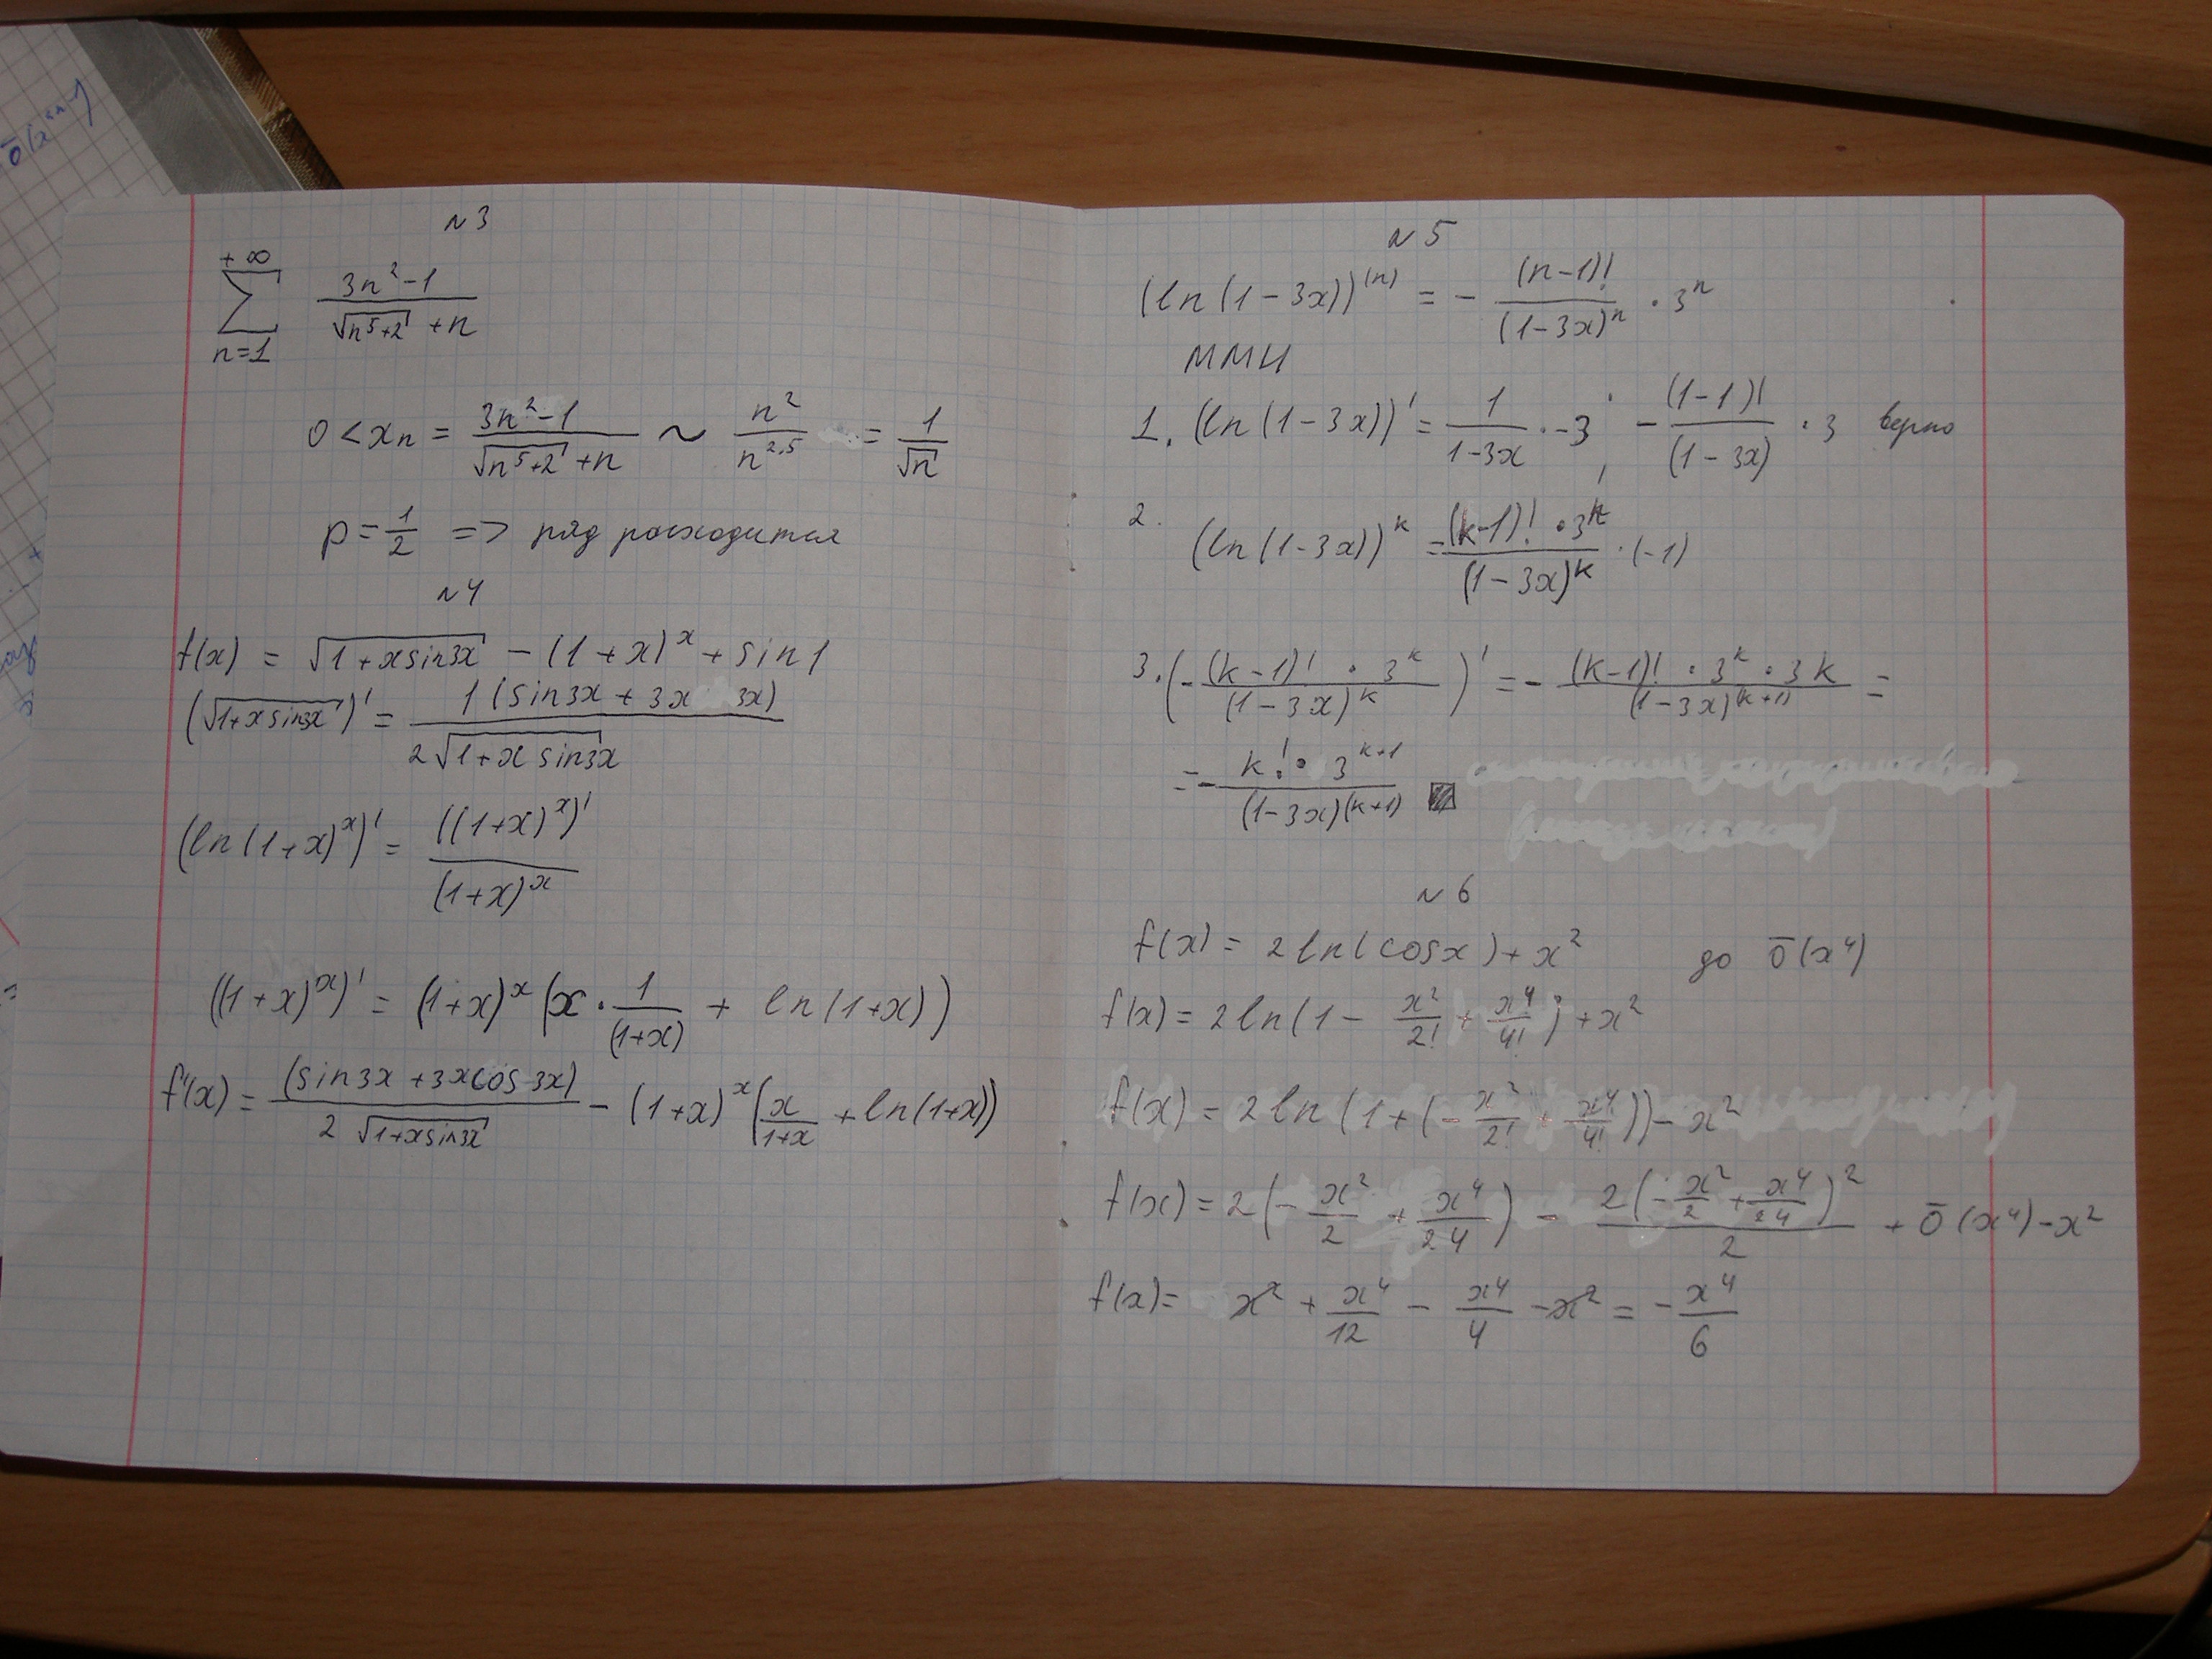 ō(x⁴ⁿ)
N 3
+∞ ∑ n=1 (3n²-1)/(√(n⁵+2) + n)
0 < xₙ = (3n²-1)/(√(n⁵+2) + n) ~ n²/n^2,5 = 1/√n
p = 1/2 => ряд расходится
N 4
f(x) = √(1+xsin3x) - (1+x)^x + sin1
(√(1+xsin3x))' = 1(sin3x + 3x 3x)/(2√(1+x sin3x))
(ln(1+x)^x)' = ((1+x)^x)'/(1+x)^x
((1+x)^x)' = (1+x)^x (x · 1/(1+x) + ln(1+x))
f'(x) = (sin3x + 3xcos3x)/(2√(1+xsin3x)) - (1+x)^x (x/(1+x) + ln(1+x))
N 5
(ln(1-3x))^(n) = - (n-1)!/(1-3x)^n · 3^n
ММИ
1. (ln(1-3x))' = 1/(1-3x) · -3 ; - (1-1)!/(1-3x) · 3 верно
2. (ln(1-3x))^k = (k-1)! · 3^k/(1-3x)^k · (-1)
3. (- (k-1)! · 3^k/(1-3x)^k)' = - (k-1)! · 3^k · 3k/(1-3x)^(k+1) =
= - k! · 3^(k+1)/(1-3x)^(k+1)
N 6
f(x) = 2ln(cosx) + x² до ō(x⁴)
f(x) = 2ln(1 - x²/2! + x⁴/4!) + x²
f(x) = 2ln(1 + (- x²/2! + x⁴/4!)) - x²
f(x) = 2(- x²/2 + x⁴/24) - 2(- x²/2 + x⁴/24)²/2 + ō(x⁴) - x²
f(x) = x² + x⁴/12 - x⁴/4 - x² = - x⁴/6